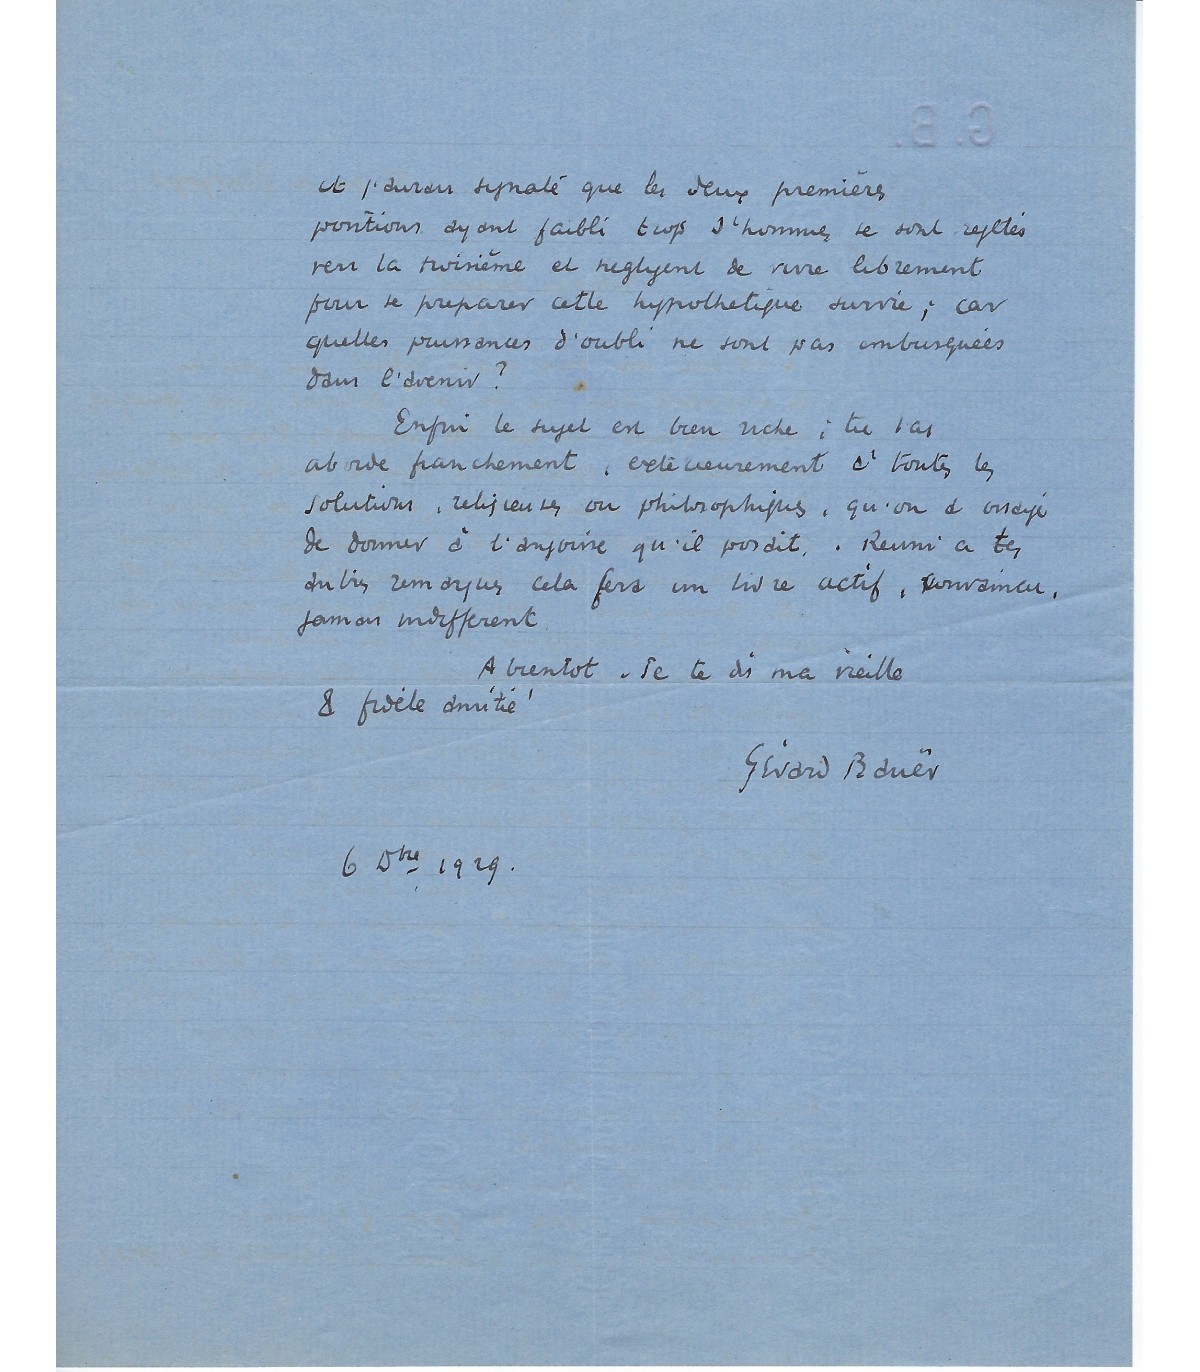 G. B.
et j'aurais signalé que les deux premières
positions ayant faibli trop d'hommes se sont rejetés
vers la troisième et negligent de vivre librement
pour se preparer cette hypothetique survie ; car
quelles puissances d'oubli ne sont pas embusquées
dans l'avenir ?
Enfin le sujet est bien riche ; tu l'as
abordé franchement, extérieurement à toutes les
solutions, religieuses ou philosophiques, qu'on a essayé
de donner à l'angoisse qu'il posait. Reuni a tes
autres remarques cela fera un livre actif, convaincu,
jamais indifferent
A bientot. Je te dis ma vieille
& fidèle amitié !
Gérard Bauër
6 Dbre 1929.